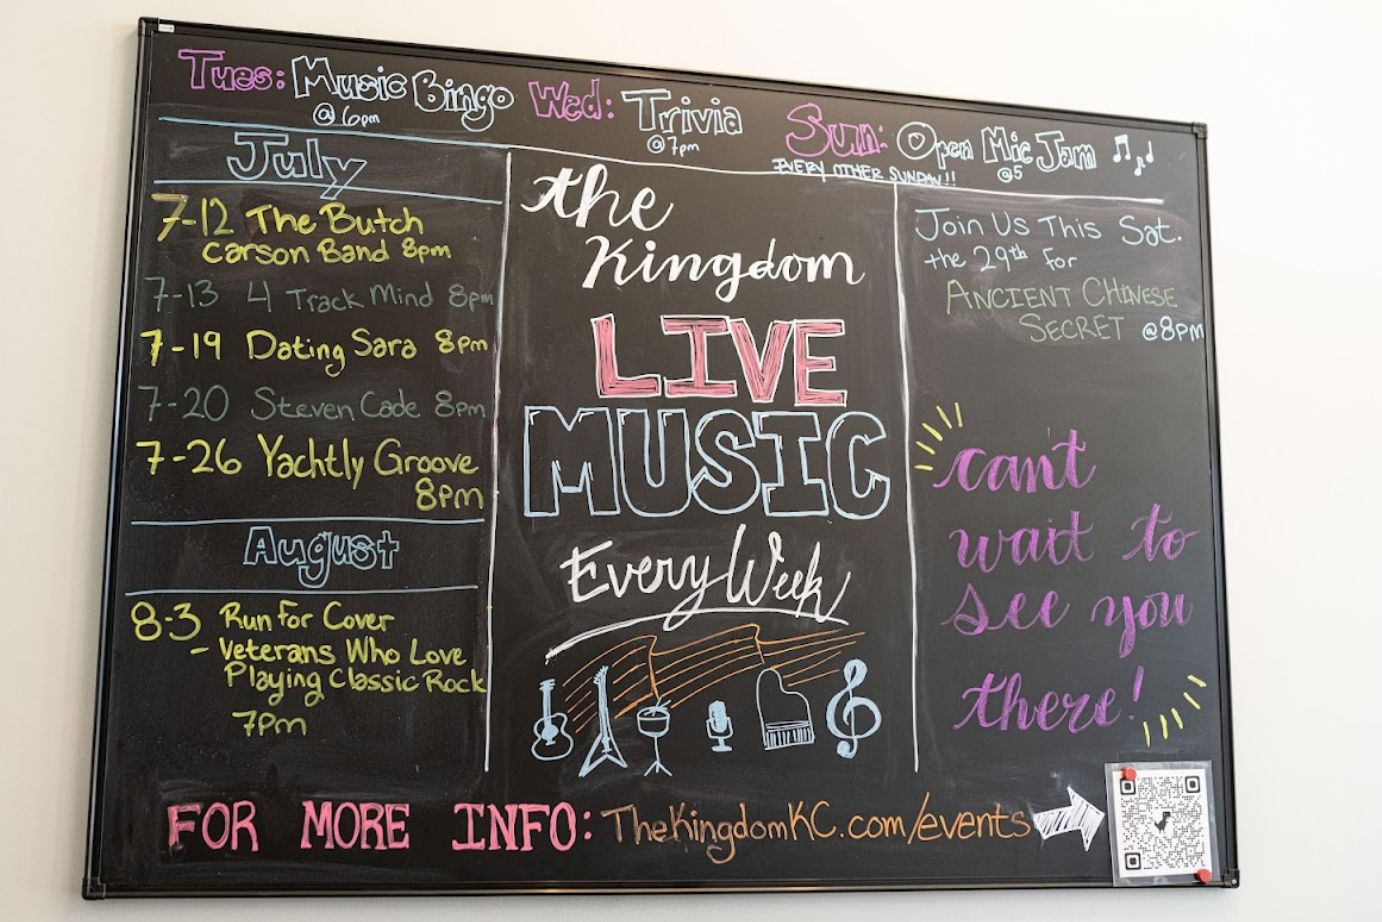 Tues: Music Bingo Wed: Trivia Sun: Open Mic Jam
@ 6pm @ 7pm EVERY OTHER SUNDAY!! @5
July
7-12 The Butch
Carson Band 8pm
7-13 4 Track Mind 8pm
7-19 Dating Sara 8pm
7-20 Steven Cade 8pm
7-26 Yachtly Groove
8pm
August
8-3 Run For Cover
- Veterans Who Love
Playing Classic Rock
7pm
the
Kingdom
LIVE
MUSIC
Every Week
Join Us This Sat.
the 29th for
ANCIENT CHINESE
SECRET @8PM
can't
wait to
see you
there!
FOR MORE INFO: TheKingdomKC.com/events